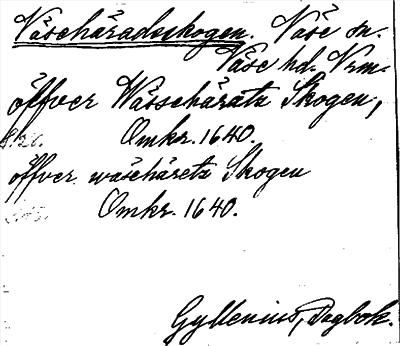 Väsehäradsskogen. Väse sn.
Väse hd. Vrm.
öffver Wässehäratz Skogen,
Omkr. 1640.
öffver wäsehäretz Skogen
Omkr. 1640.
Gyllenius, Dagbok.